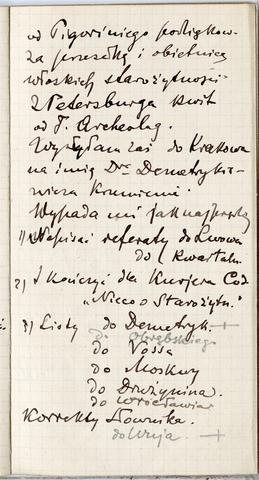 od Pigoriniego podziękow-
za przesyłkę i obietnicę
włoskich starożytności-
Z Petersburga kwit
od T. Archeolog.
Wysyłam zaś do Krakowa
na imię Dra Demetrykie-
wicza Krzemienie.
Wypada mi jaknajprędzej
1) Napisać referaty do Lwowa
do Kwartaln.
2) Skończyć dla Kurjera Cod.
"Nieco o Starożytn."
3) Listy do Demetryk. +
do Obrębskiego
do Vossa
do Moskwy
do Drużynina.
do Wrocławia
Korrekty Słownika.
do Wuja. +